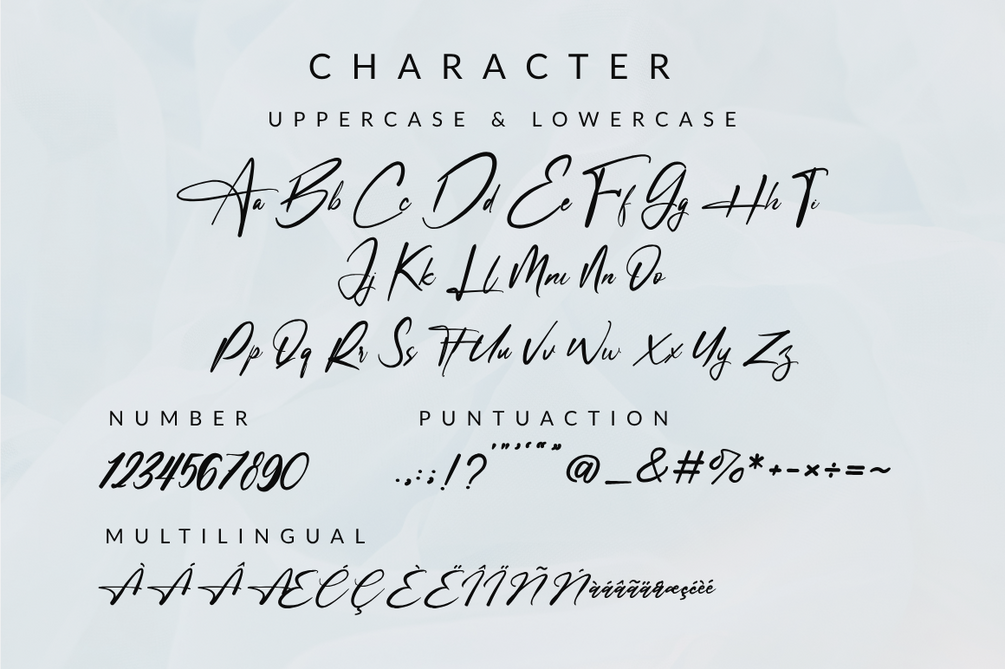 CHARACTER
UPPERCASE & LOWERCASE
Aa Bb Cc Dd Ee Ff Gg Hh Ii
Jj Kk Ll Mm Nn Oo
Pp Qq Rr Ss Tt Uu Vv Ww Xx Yy Zz
NUMBER
PUNTUACTION
1234567890
.,:;!?'"‚‘“”@_&#%*+-×÷=~
MULTILINGUAL